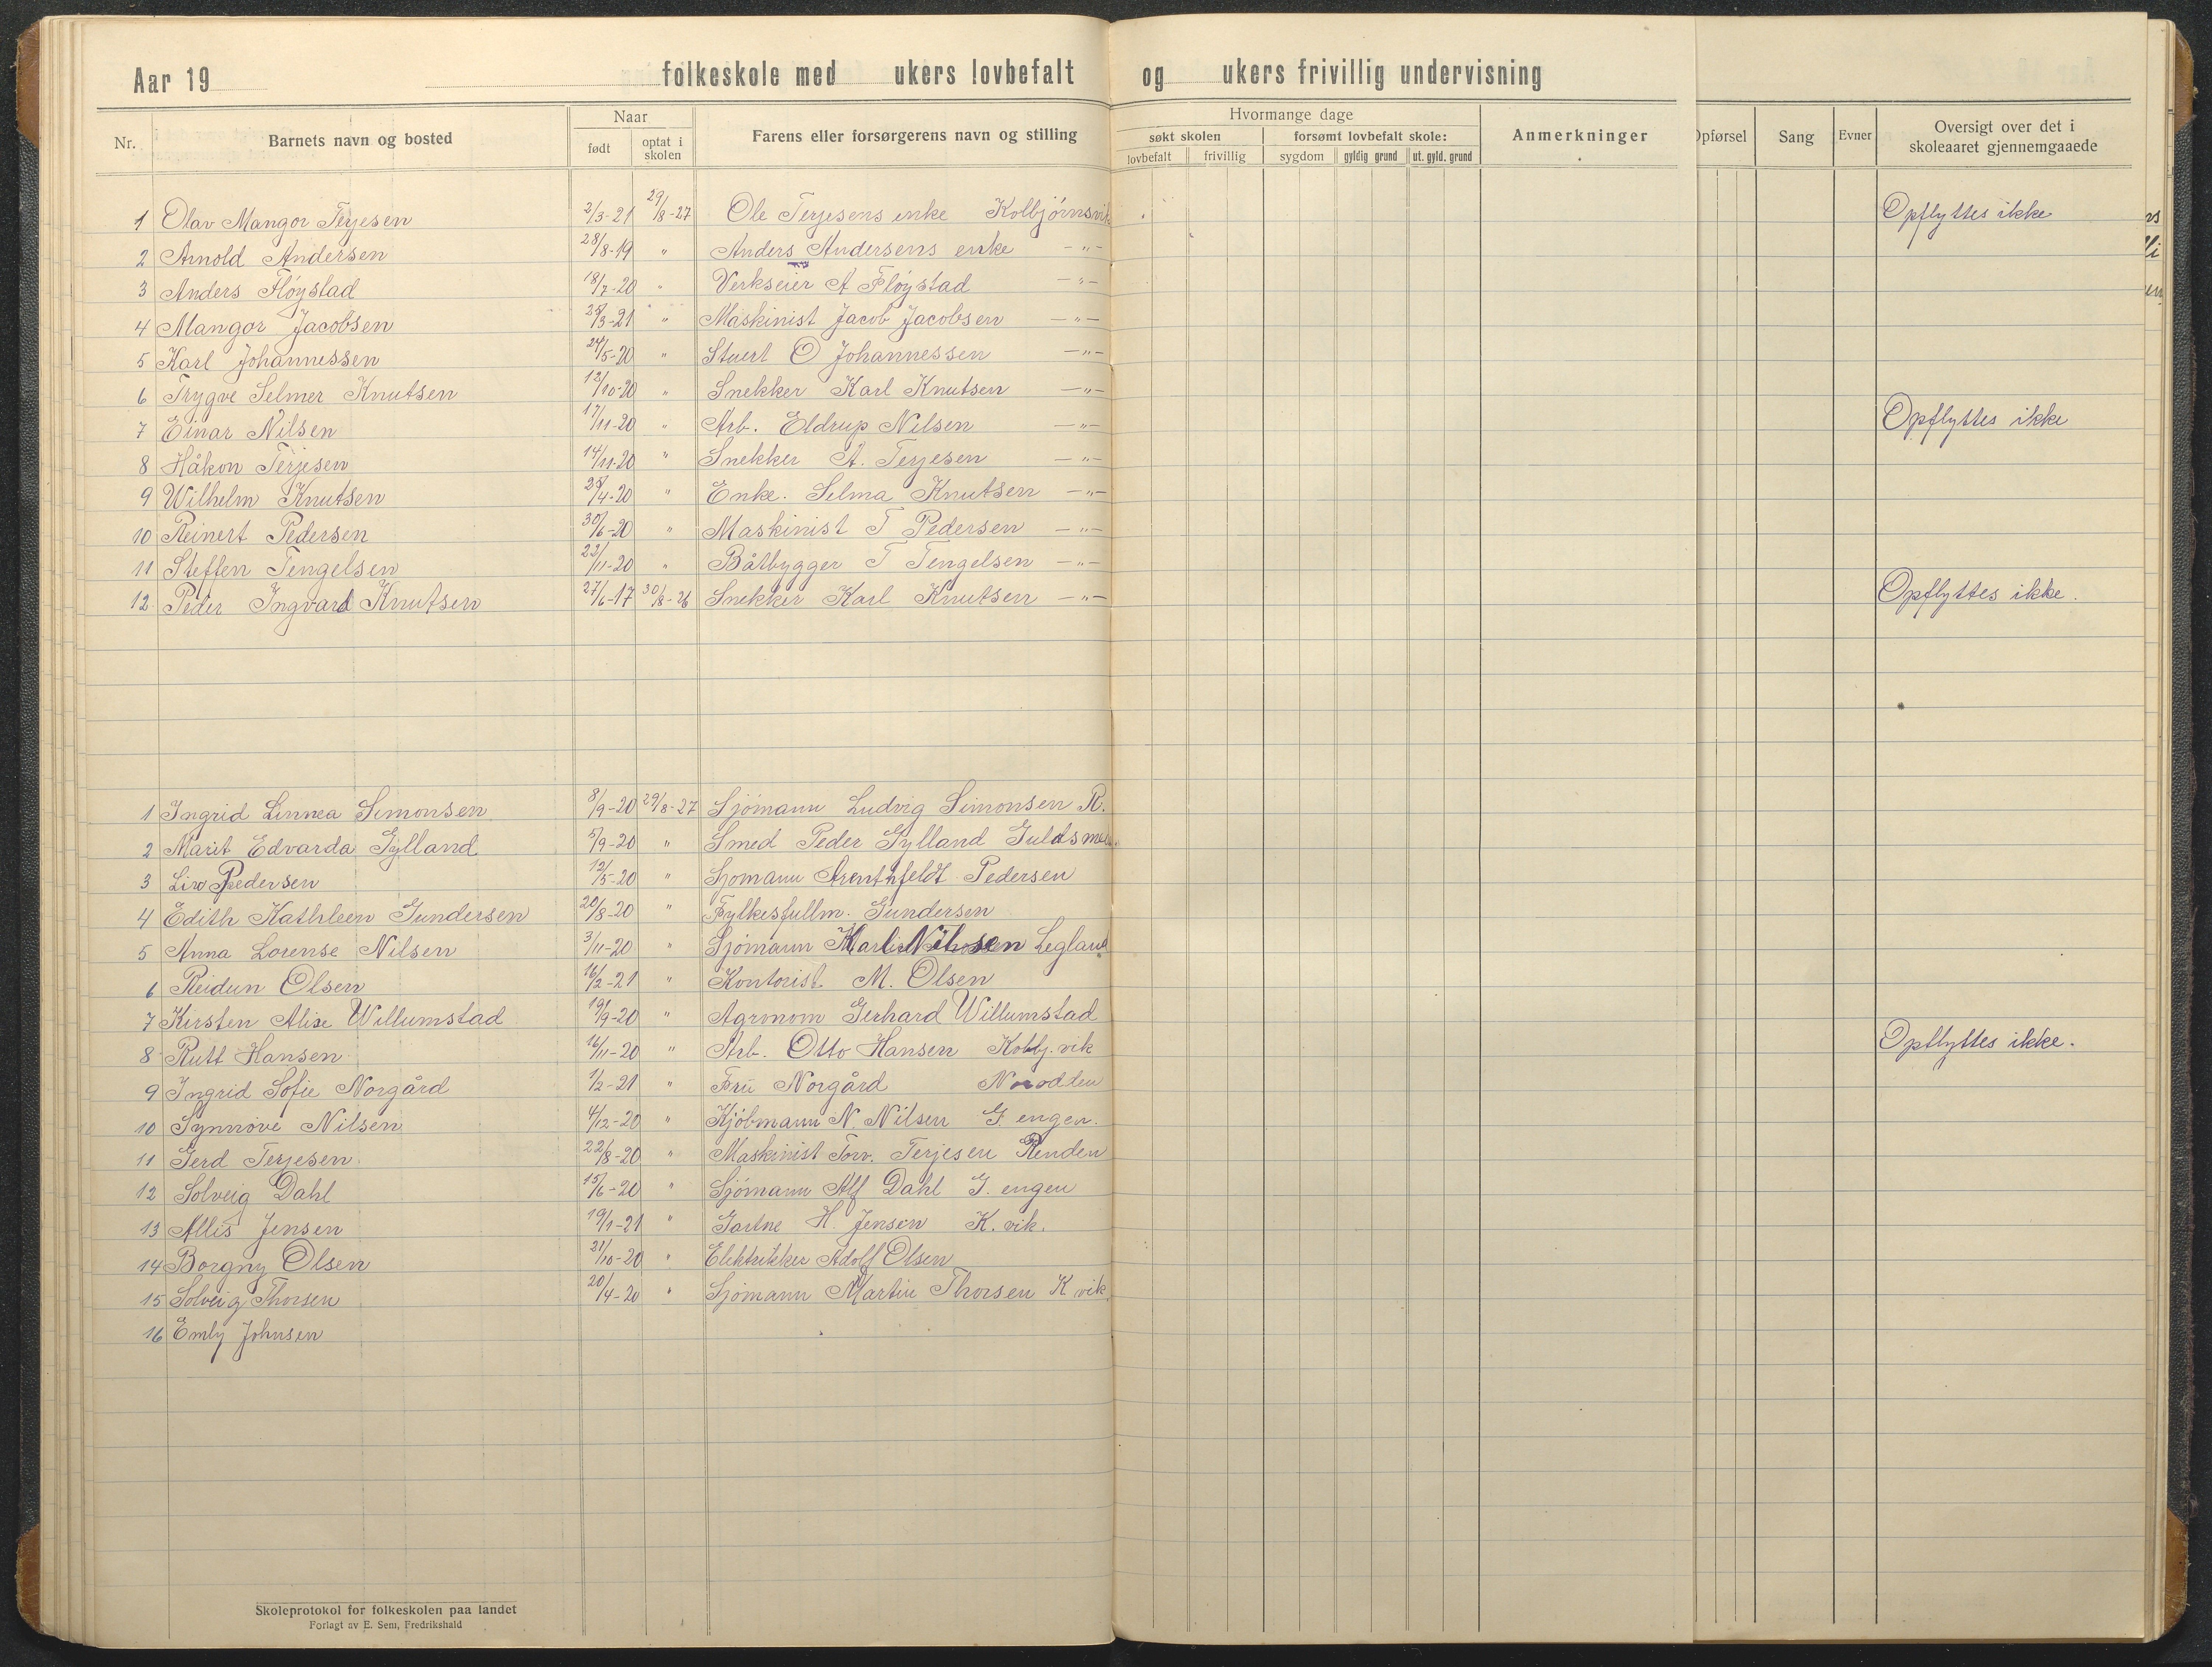 Aar 19 folkeskole med ukers lovbefalt og ukers frivillig undervisning
Nr. Barnets navn og bosted Naar født optat i skolen Farens eller forsørgerens navn og stilling Hvormange dage søkt skolen lovbefalt frivillig forsømt lovbefalt skole: sygdom gyldig grund ut. gyld. grund Anmerkninger Opførsel Sang Evner Oversigt over det i skoleaaret gjennemgaaede
1 Olav Mangor Terjesen 2/3-21 29/8-27 Ole Terjesens enke Kolbjörnsvik Opflyttes ikke
2 Arnold Andersen 28/8-19 " Anders Andersens enke -"-
3 Anders Flöystad 18/7-20 " Verkseier A Flöystad -"-
4 Mangor Jacobsen 25/3-21 " Maskinist Jacob Jacobsen -"-
5 Karl Johannessen 24/5-20 " Stuert O Johannessen -"-
6 Trygve Selmer Knutsen 12/10-20 " Snekker Karl Knutsen -"-
7 Einar Nilsen 17/11-20 " Arb. Eldrup Nilsen -"- Opflyttes ikke
8 Håkon Terjesen 14/11-20 " Snekker A. Terjesen -"-
9 Wilhelm Knutsen 25/4-20 " Enke. Selma Knutsen -"-
10 Reinert Pedersen 30/6-20 " Maskinist T Pedersen -"-
11 Steffen Tengelsen 22/11-20 " Båtbygger T Tengelsen -"-
12 Peder Ingvard Knutsen 27/6-17 30/8-26 Snekker Karl Knutsen -"- Opflyttes ikke.
1 Ingrid Linnea Simonsen 8/9-20 29/8-27 Sjömann Ludvig Simonsen R.
2 Marit Edvarda Gylland 5/9-20 " Smed Peder Gylland
3 Liv Pedersen 12/5-20 " Sjomann Arenthfeldt Pedersen
4 Edith Kathleen Gundersen 20/8-20 " Fylkesfullm. Gundersen
5 Anna Lorense Nilsen 3/11-20 " Sjömann Nilsen Legland
6 Reidun Olsen 16/2-21 " Kontorist M. Olsen
7 Kirsten Alise Willumstad 19/9-20 " Agronom Gerhard Willumstad
8 Rutt Hansen 16/11-20 " Arb. Otto Hansen Kolbj. vik Opflyttes ikke.
9 Ingrid Sofie Norgård 1/2-21 " Fru Norgård Norodden
10 Synnöve Nilsen 4/12-20 " Kjöbmann N. Nilsen G. engen.
11 Gerd Terjesen 22/8-20 " Maskinist Torv. Terjesen Renden
12 Solveig Dahl 15/6-20 " Sjömann Alf Dahl G. engen
13 Allis Jensen 19/1-21 " Gartne H. Jensen K. vik.
14 Borgny Olsen 21/10-20 " Elektrikker Adolf Olsen
15 Solveig Thorsen 20/4-20 " Sjömann Martin Thorsen K vik.
16 Emly Johnsen
Skoleprotokol for folkeskolen paa landet
Forlagt av E. Sem, Fredrikshald